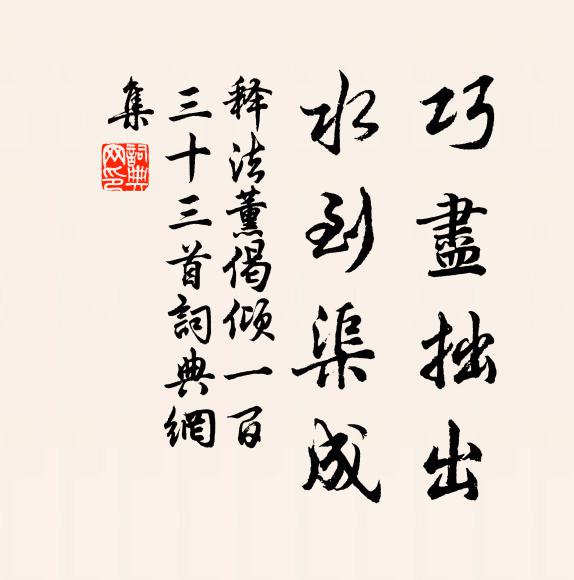 巧盡拙出
水到渠成
释法薰偈傾一百
三十三首詞典網
集
詞典網印